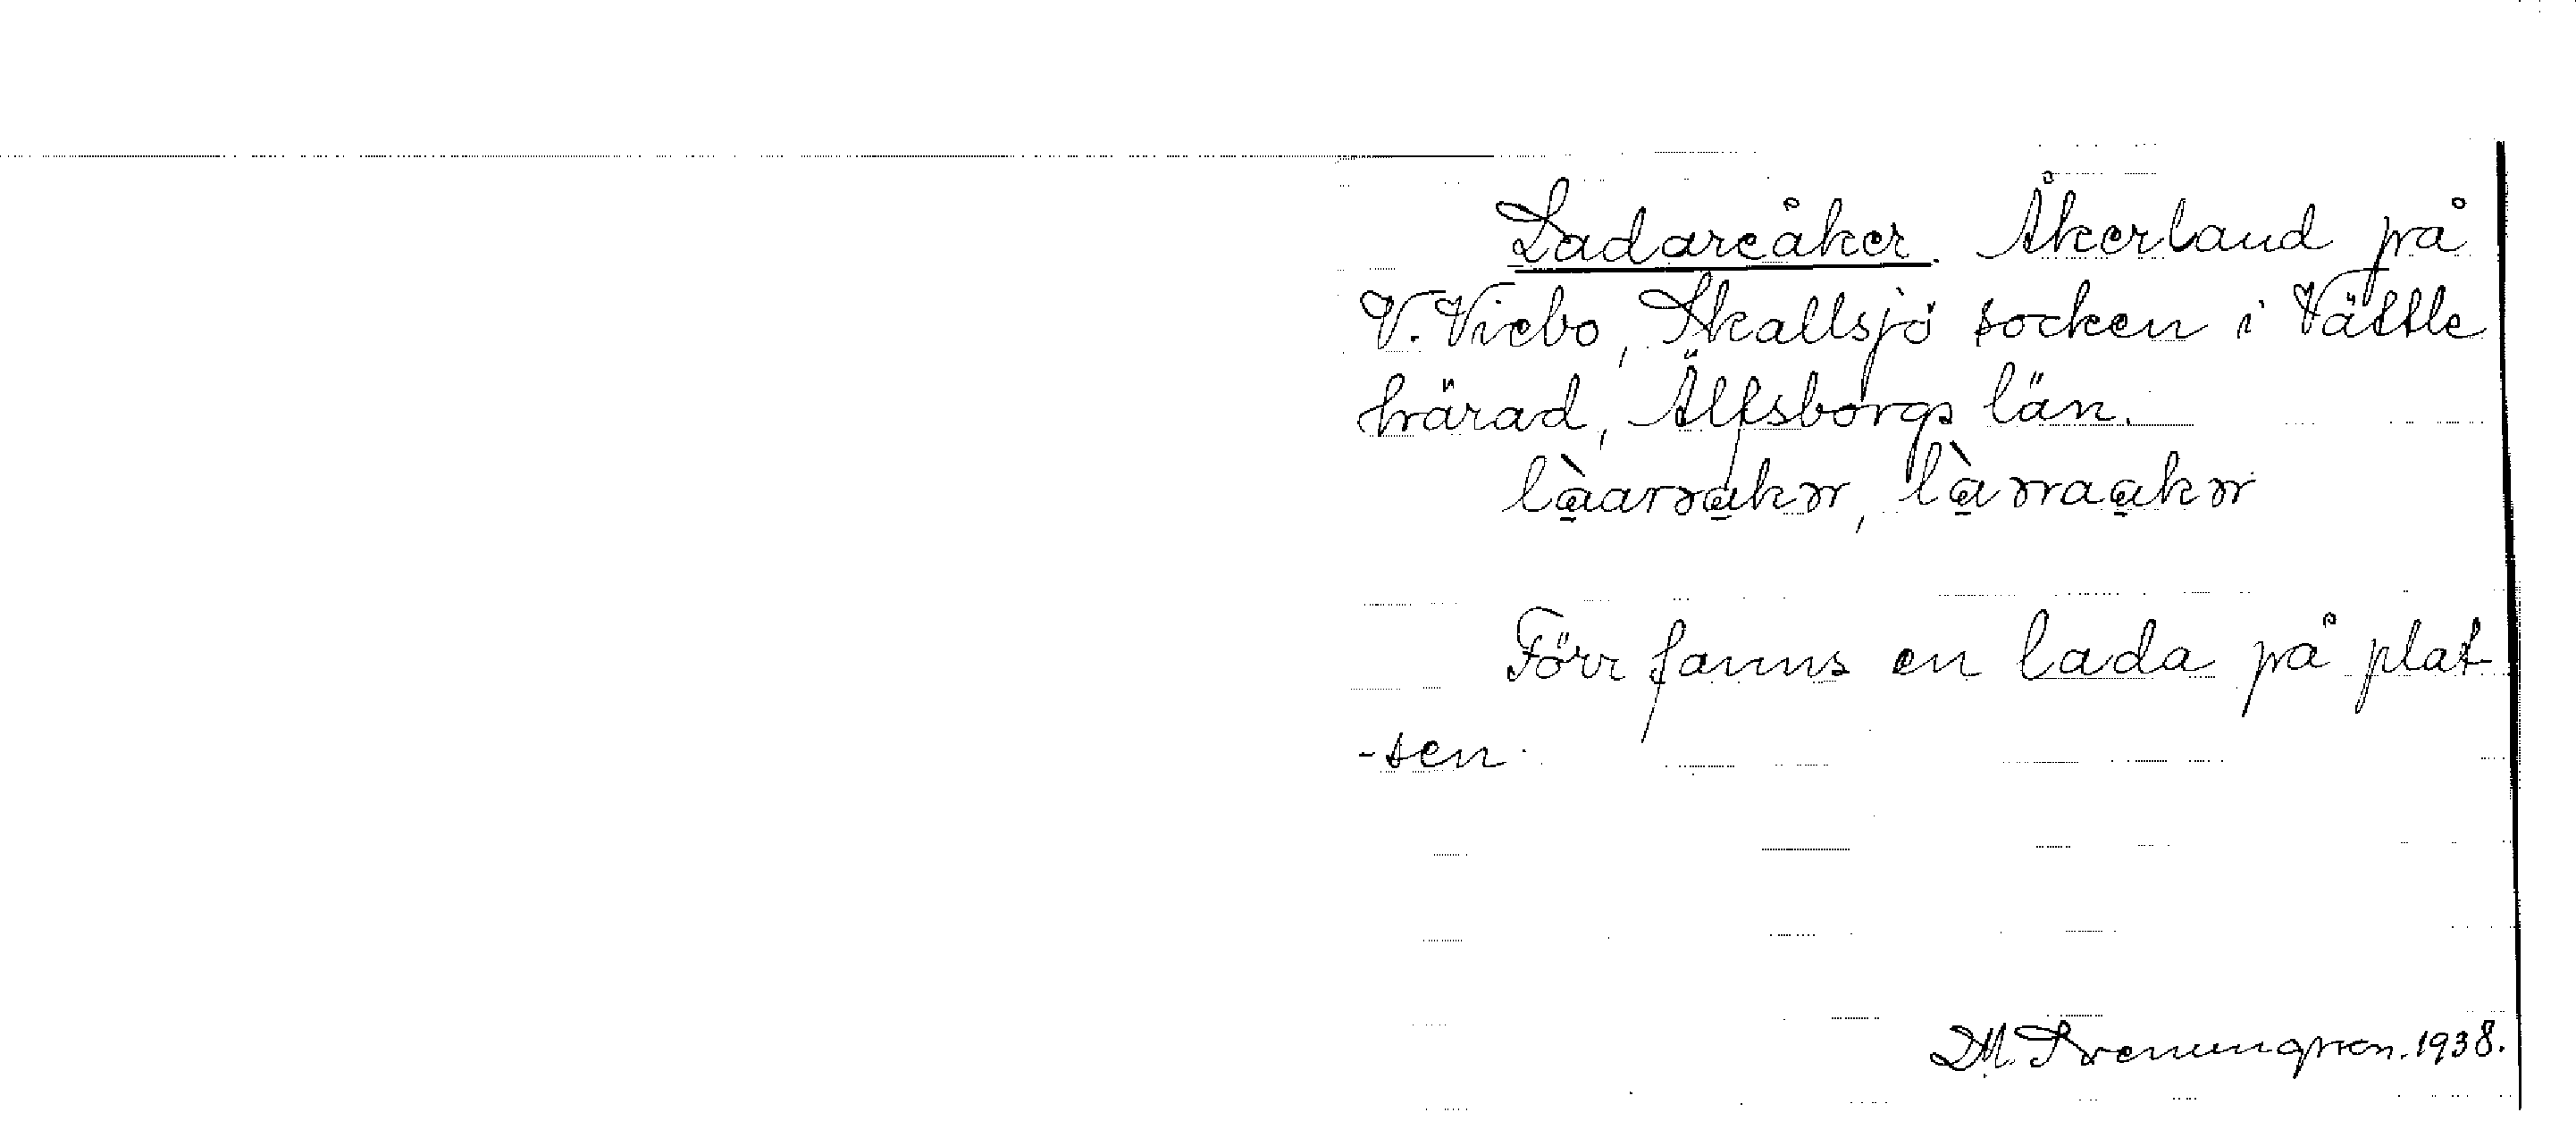 Ladareåker. Åkerland på
V. Viebo, Skallsjö socken i Vättle
härad, Älfsborgs län.
Förr fanns en lada på plat-
-sen.
D.M. Svenungsson. 1938.